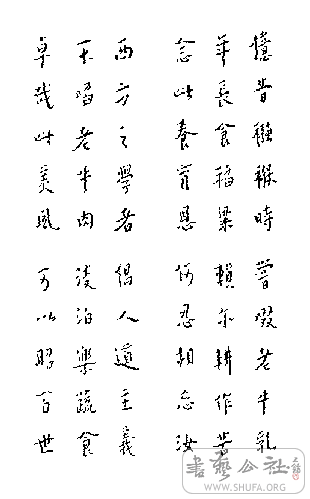 憶昔襁褓時 嘗啜老牛乳
年長食稻粱 賴尔耕作苦
念此養育恩 何忍相忘汝
西方之學者 倡人道主義
不啗老牛肉 淡泊樂蔬食
卓哉此美風 可以昭百世
書藝公社
WWW.SHUFA.ORG